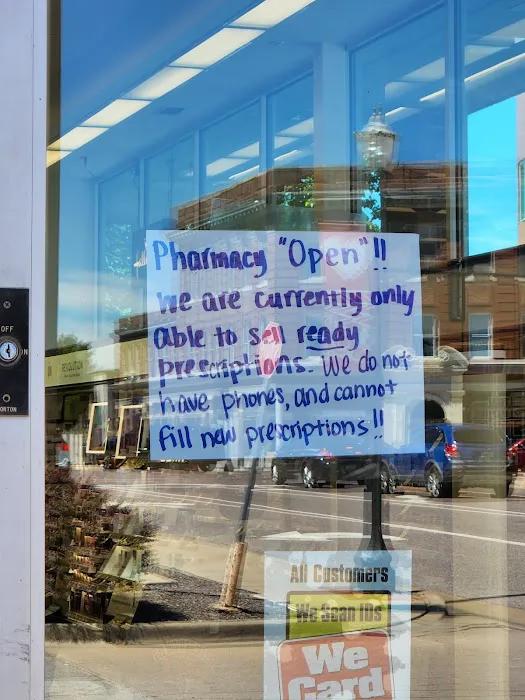 Pharmacy "Open"!!
We are currently only
able to sell ready
prescriptions. We do not
have phones, and cannot
fill new prescriptions!!
All Customers
We Scan IDs
We
Card
OFF
ON
NORTON
REVOLUTION